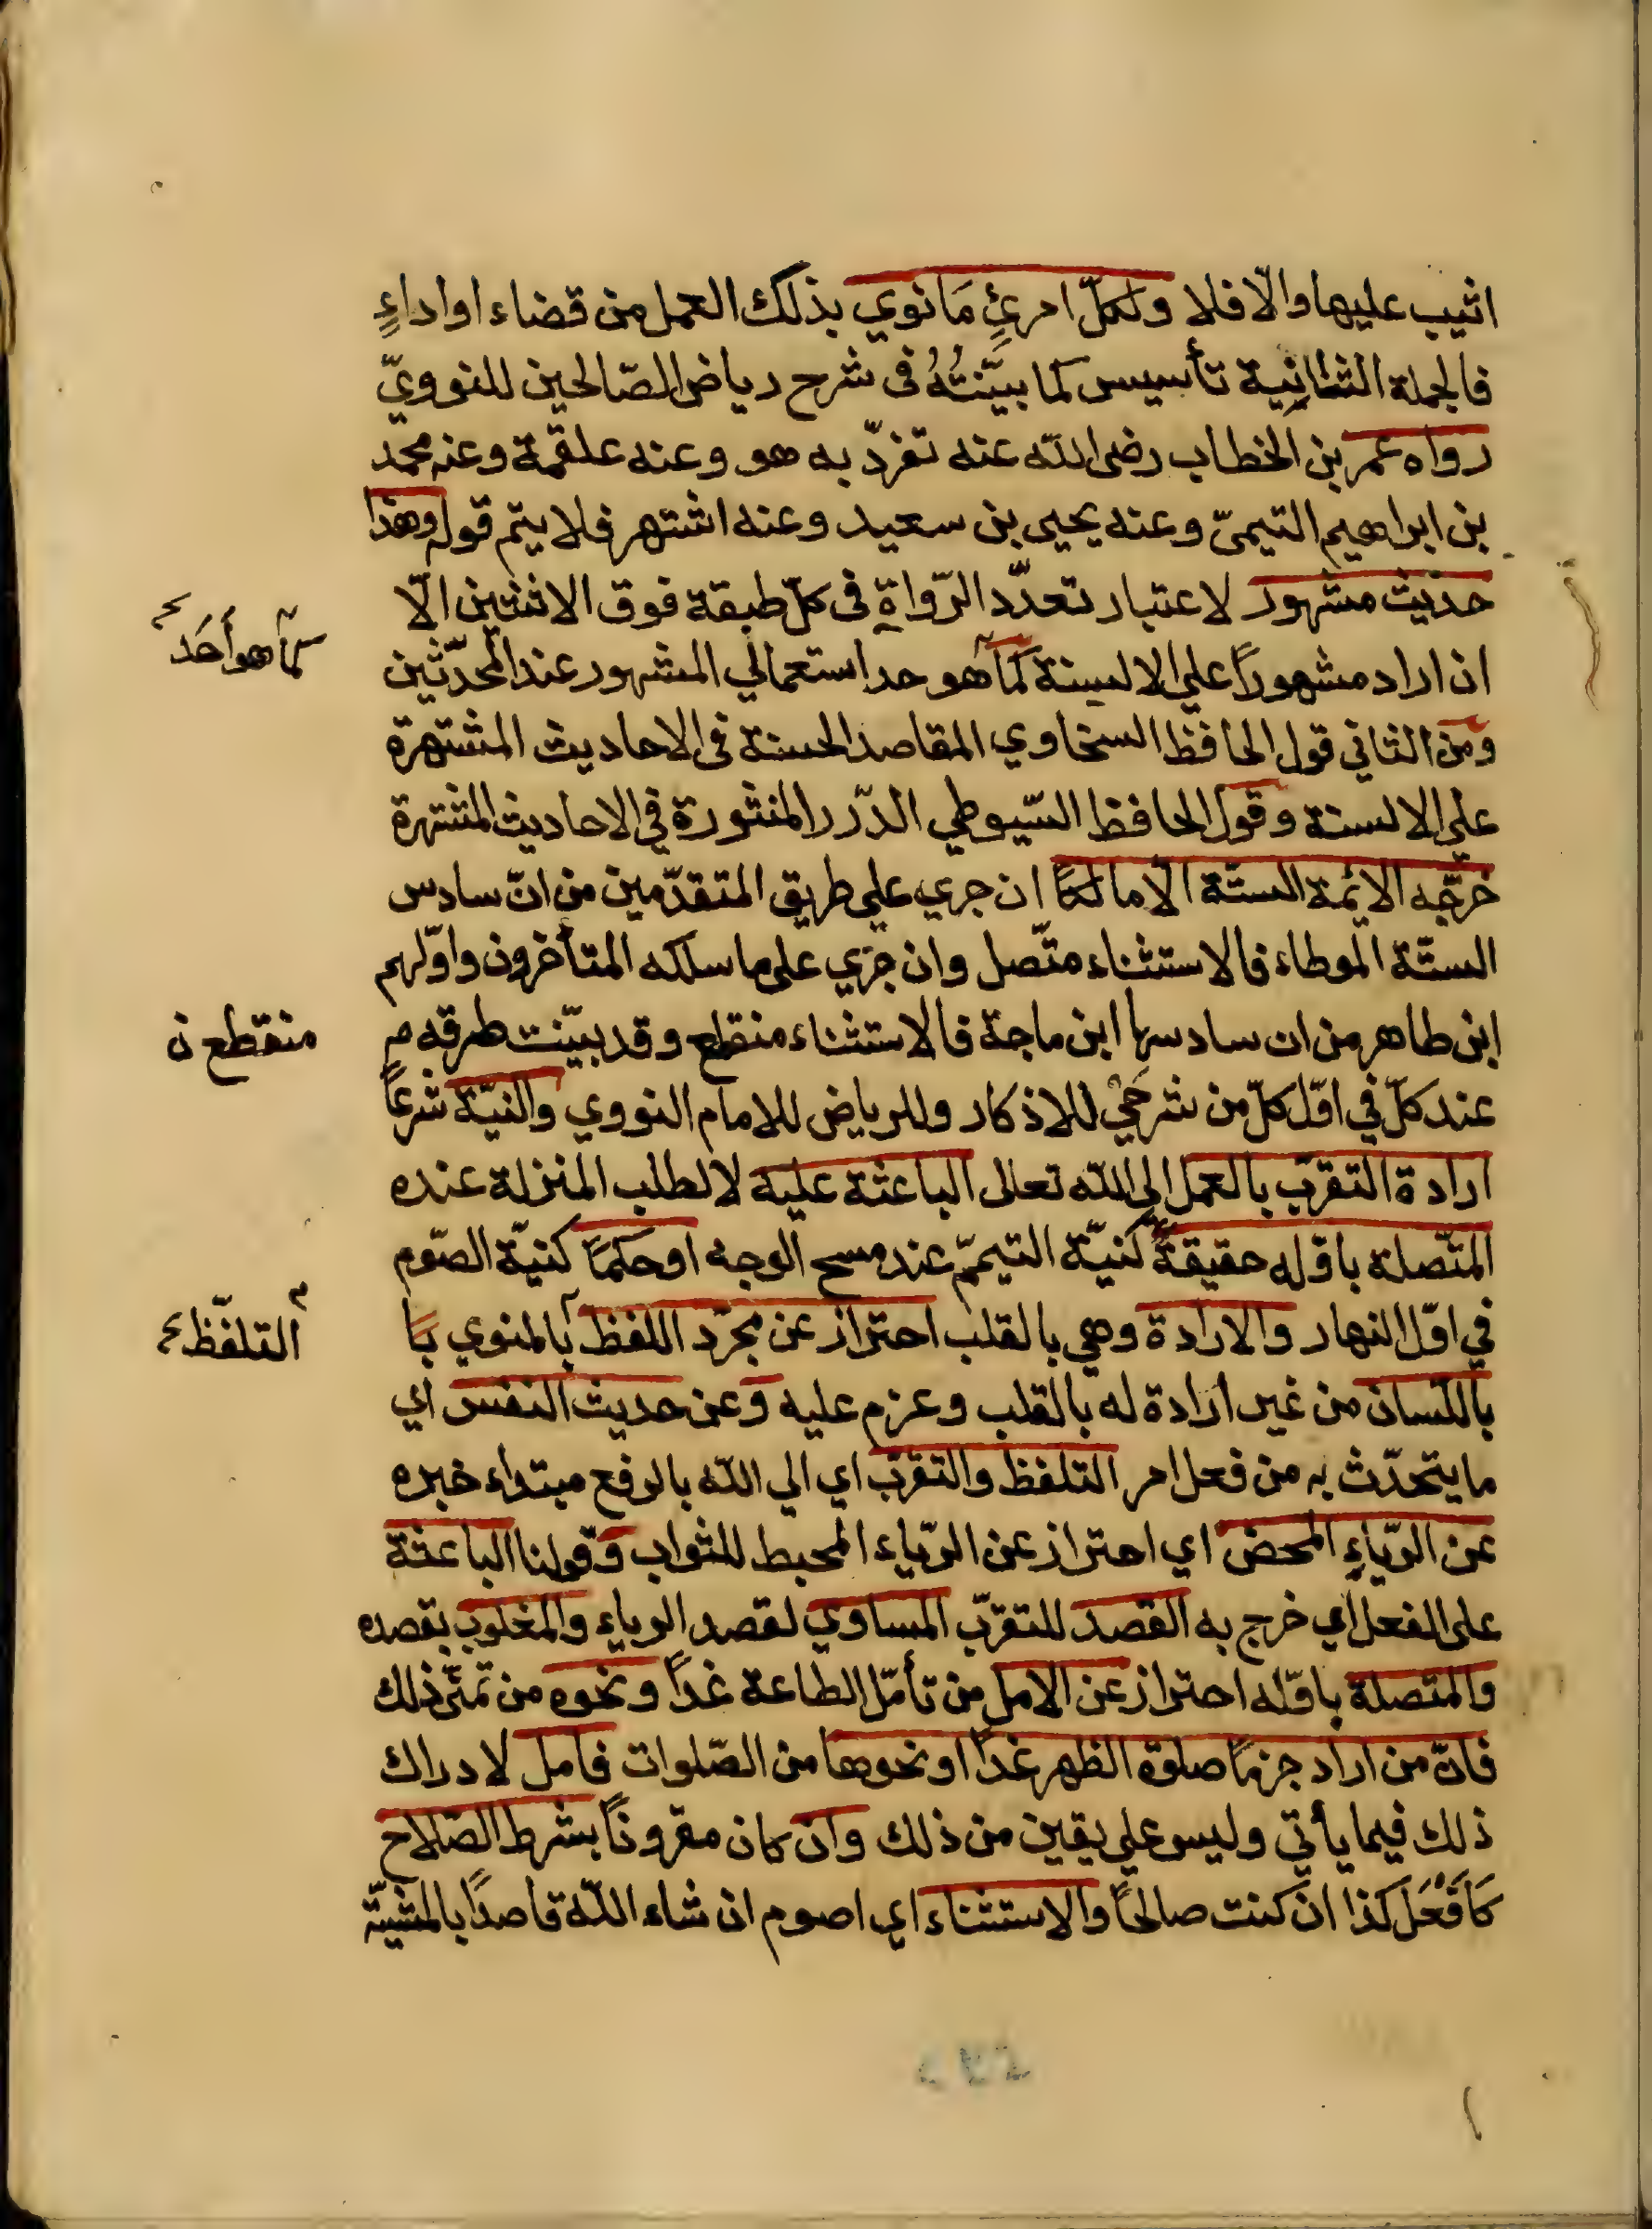 اثيب عليها والّا فلا ولكلّ امرئٍ مَا نوي بذلك العمل من قضاء او اداءٍ
فالجملة الثانِية تأسيس كما بيَّنتُهُ فى شرح رياض الصّالحين للنوويّ
رواه عمر بن الخطاب رضى الله عنه تفرّد به هو وعنه علقمة وعنه محمد
بن ابراهيم التيمىّ وعنه يحيى بن سعيد وعنه اشتهر فلا يتم قوله وهذا
حديث مشهور لاعتبار تعدّد الرّواة فى كلّ طبقة فوق الاثنين الّا
ان اراد مشهوراً علي الالسنة كما هو حد استعمالي المشهور عند المحدّثين
كما هو أحَد
ومن الثاني قول الحافظ السخاوي المقاصد الحسنة فى الاحاديث المشتهرة
علي الالسنة وقول الحافظ السّيوطي الدّرر المنثورة في الاحاديث المشتهرة
خرّجه الائمة الستّة الّا مالكاً ان جري علي طريق المتقدّمين من انّ سادس
الستّة الموطاء فالاستثناء متّصل وان جري على ما سلكه المتأخرون واوّلهم
ابن طاهر من ان سادسها ابن ماجة فالاستثناء منقطع وقد بيّنت طرقه م
منقطع ن
عند كلّ في اوّل كلّ من شرحَيْ للاذكار وللرياض للامام النووي والنيّة شرعاً
ارادة التقرّب بالعمل الى الله تعالى الباعثة عليه لا لطلب المنزلة عنده
المتّصلة باوّله حقيقةً كنيّة التيممّ عند مسح الوجه او حكماً كنيّة الصّوم
في اوّل النهار والارادة وهي بالقلب احتراز عن مجرّد اللفظ بالمنوي با
التلفّظ
باللّسان من غير ارادة له بالقلب وعزم عليه وعن حديث النفس اي
ما يتحدّث به من فعل امر التلفظ والتقرّب اي الي الله بالرفع مبتداء خبره
عن الرّياءِ المحض اي احتراز عن الرّياء المحبط للثواب وقولنا الباعثة
على الفعل اي خرج به القصد للتقرّب المساوي لقصد الرياء والمغلوب بقصده
والمتصلة باوّله احتراز عن الامل من تأمّل الطاعة غداً ونحوه من تمنّى ذلك
فانّ من اراد جزماً صلوة الظهر غداً او نحوها من الصّلوات فامل لادراك
ذلك فيما يأتي وليس علي يقين من ذلك وان كان مقروناً بشرط الصّلاح
كَأفْعَل كذا ان كنت صالحاً والاستثناء اي اصوم ان شاء الله قاصداً بالمشيّة